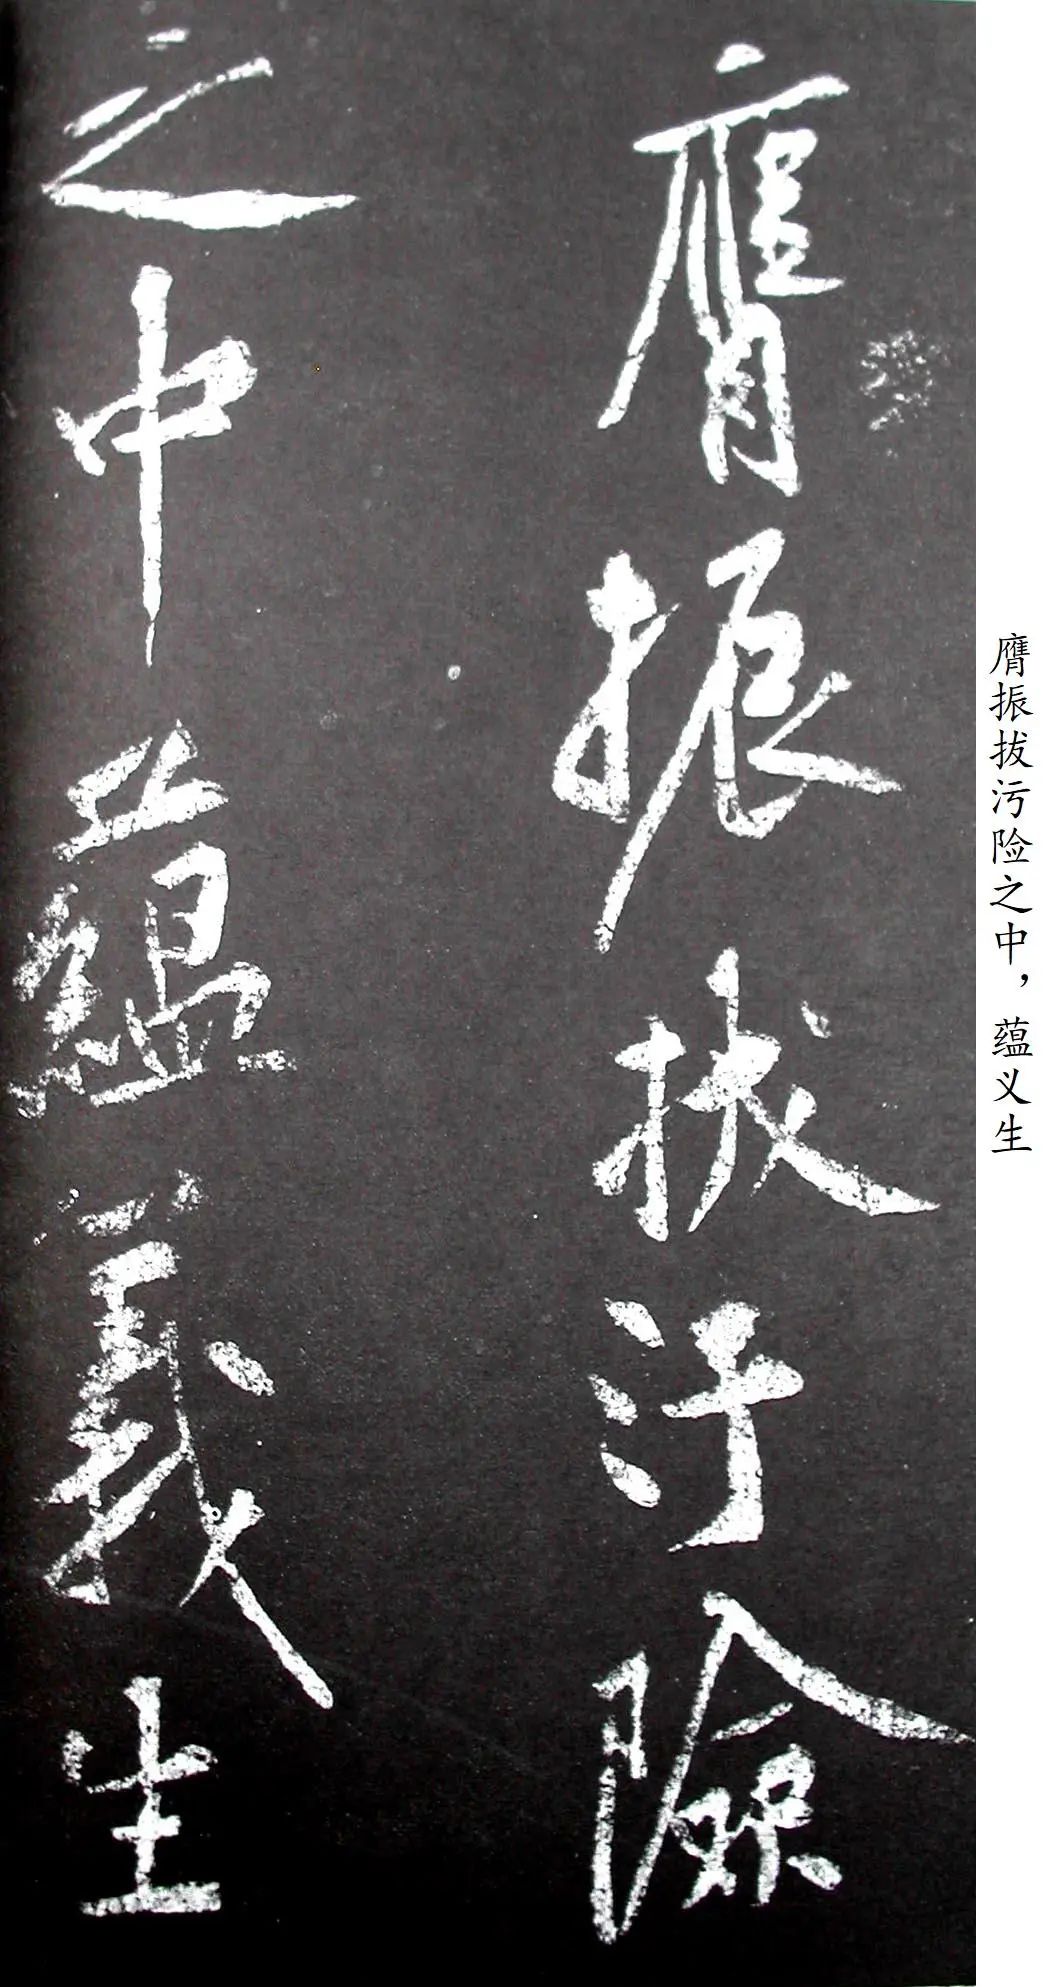 膺振拔汙險
之中蘊義生
膺振拔污险之中，蕴义生